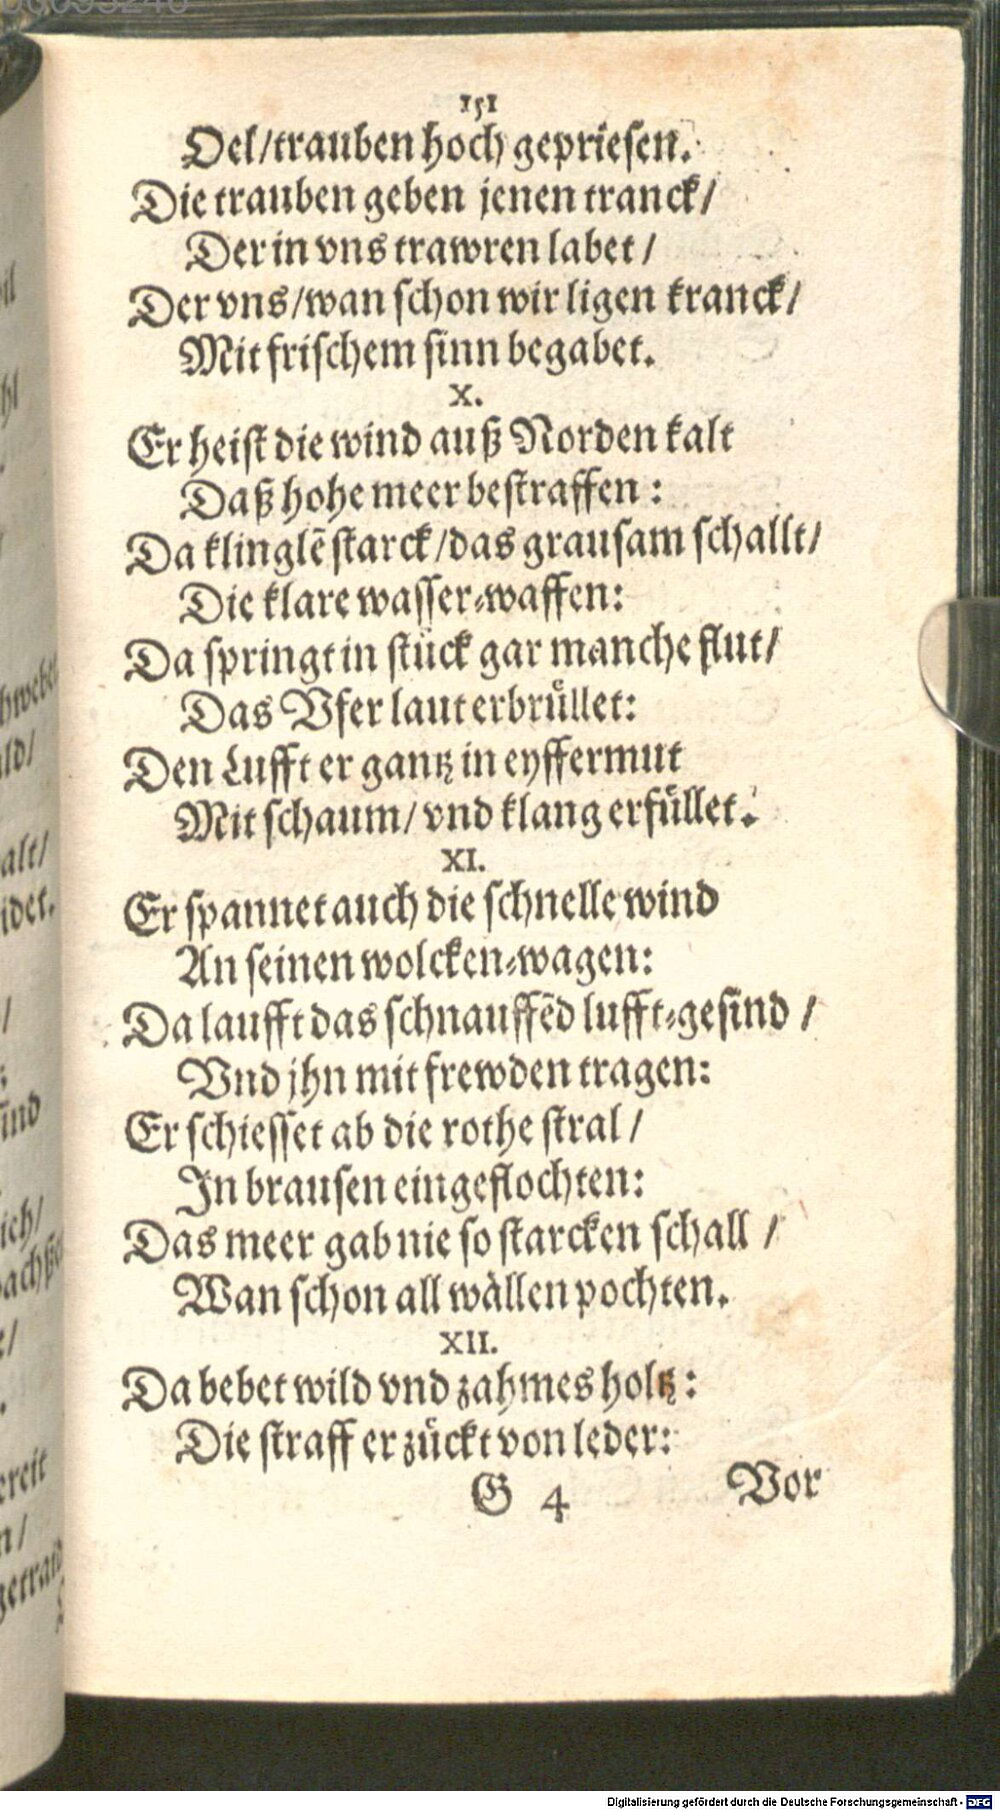 151
Oel/trauben hoch gepriesen.
Die trauben geben jenen tranck/
Der in vns trawren labet/
Der vns/wan schon wir ligen kranck/
Mit frischem sinn begabet.
X.
Er heist die wind auß Norden kalt
Daß hohe meer bestraffen:
Da klinglē starck/das grausam schallt/
Die klare wasser-waffen:
Da springt in stück gar manche flut/
Das Vfer laut erbrüllet:
Den Lufft er gantz in eyffermut
Mit schaum/vnd klang erfüllet.
XI.
Er spannet auch die schnelle wind
An seinen wolcken-wagen:
Da laufft das schnauffēd lufft-gesind/
Vnd jhn mit frewden tragen:
Er schiesset ab die rothe stral/
In brausen eingeflochten:
Das meer gab nie so starcken schall/
Wan schon all wällen pochten.
XII.
Da bebet wild vnd zahmes holtz:
Die straff er zückt von leder:
G 4 Vor
Digitalisierung gefördert durch die Deutsche Forschungsgemeinschaft - DFG